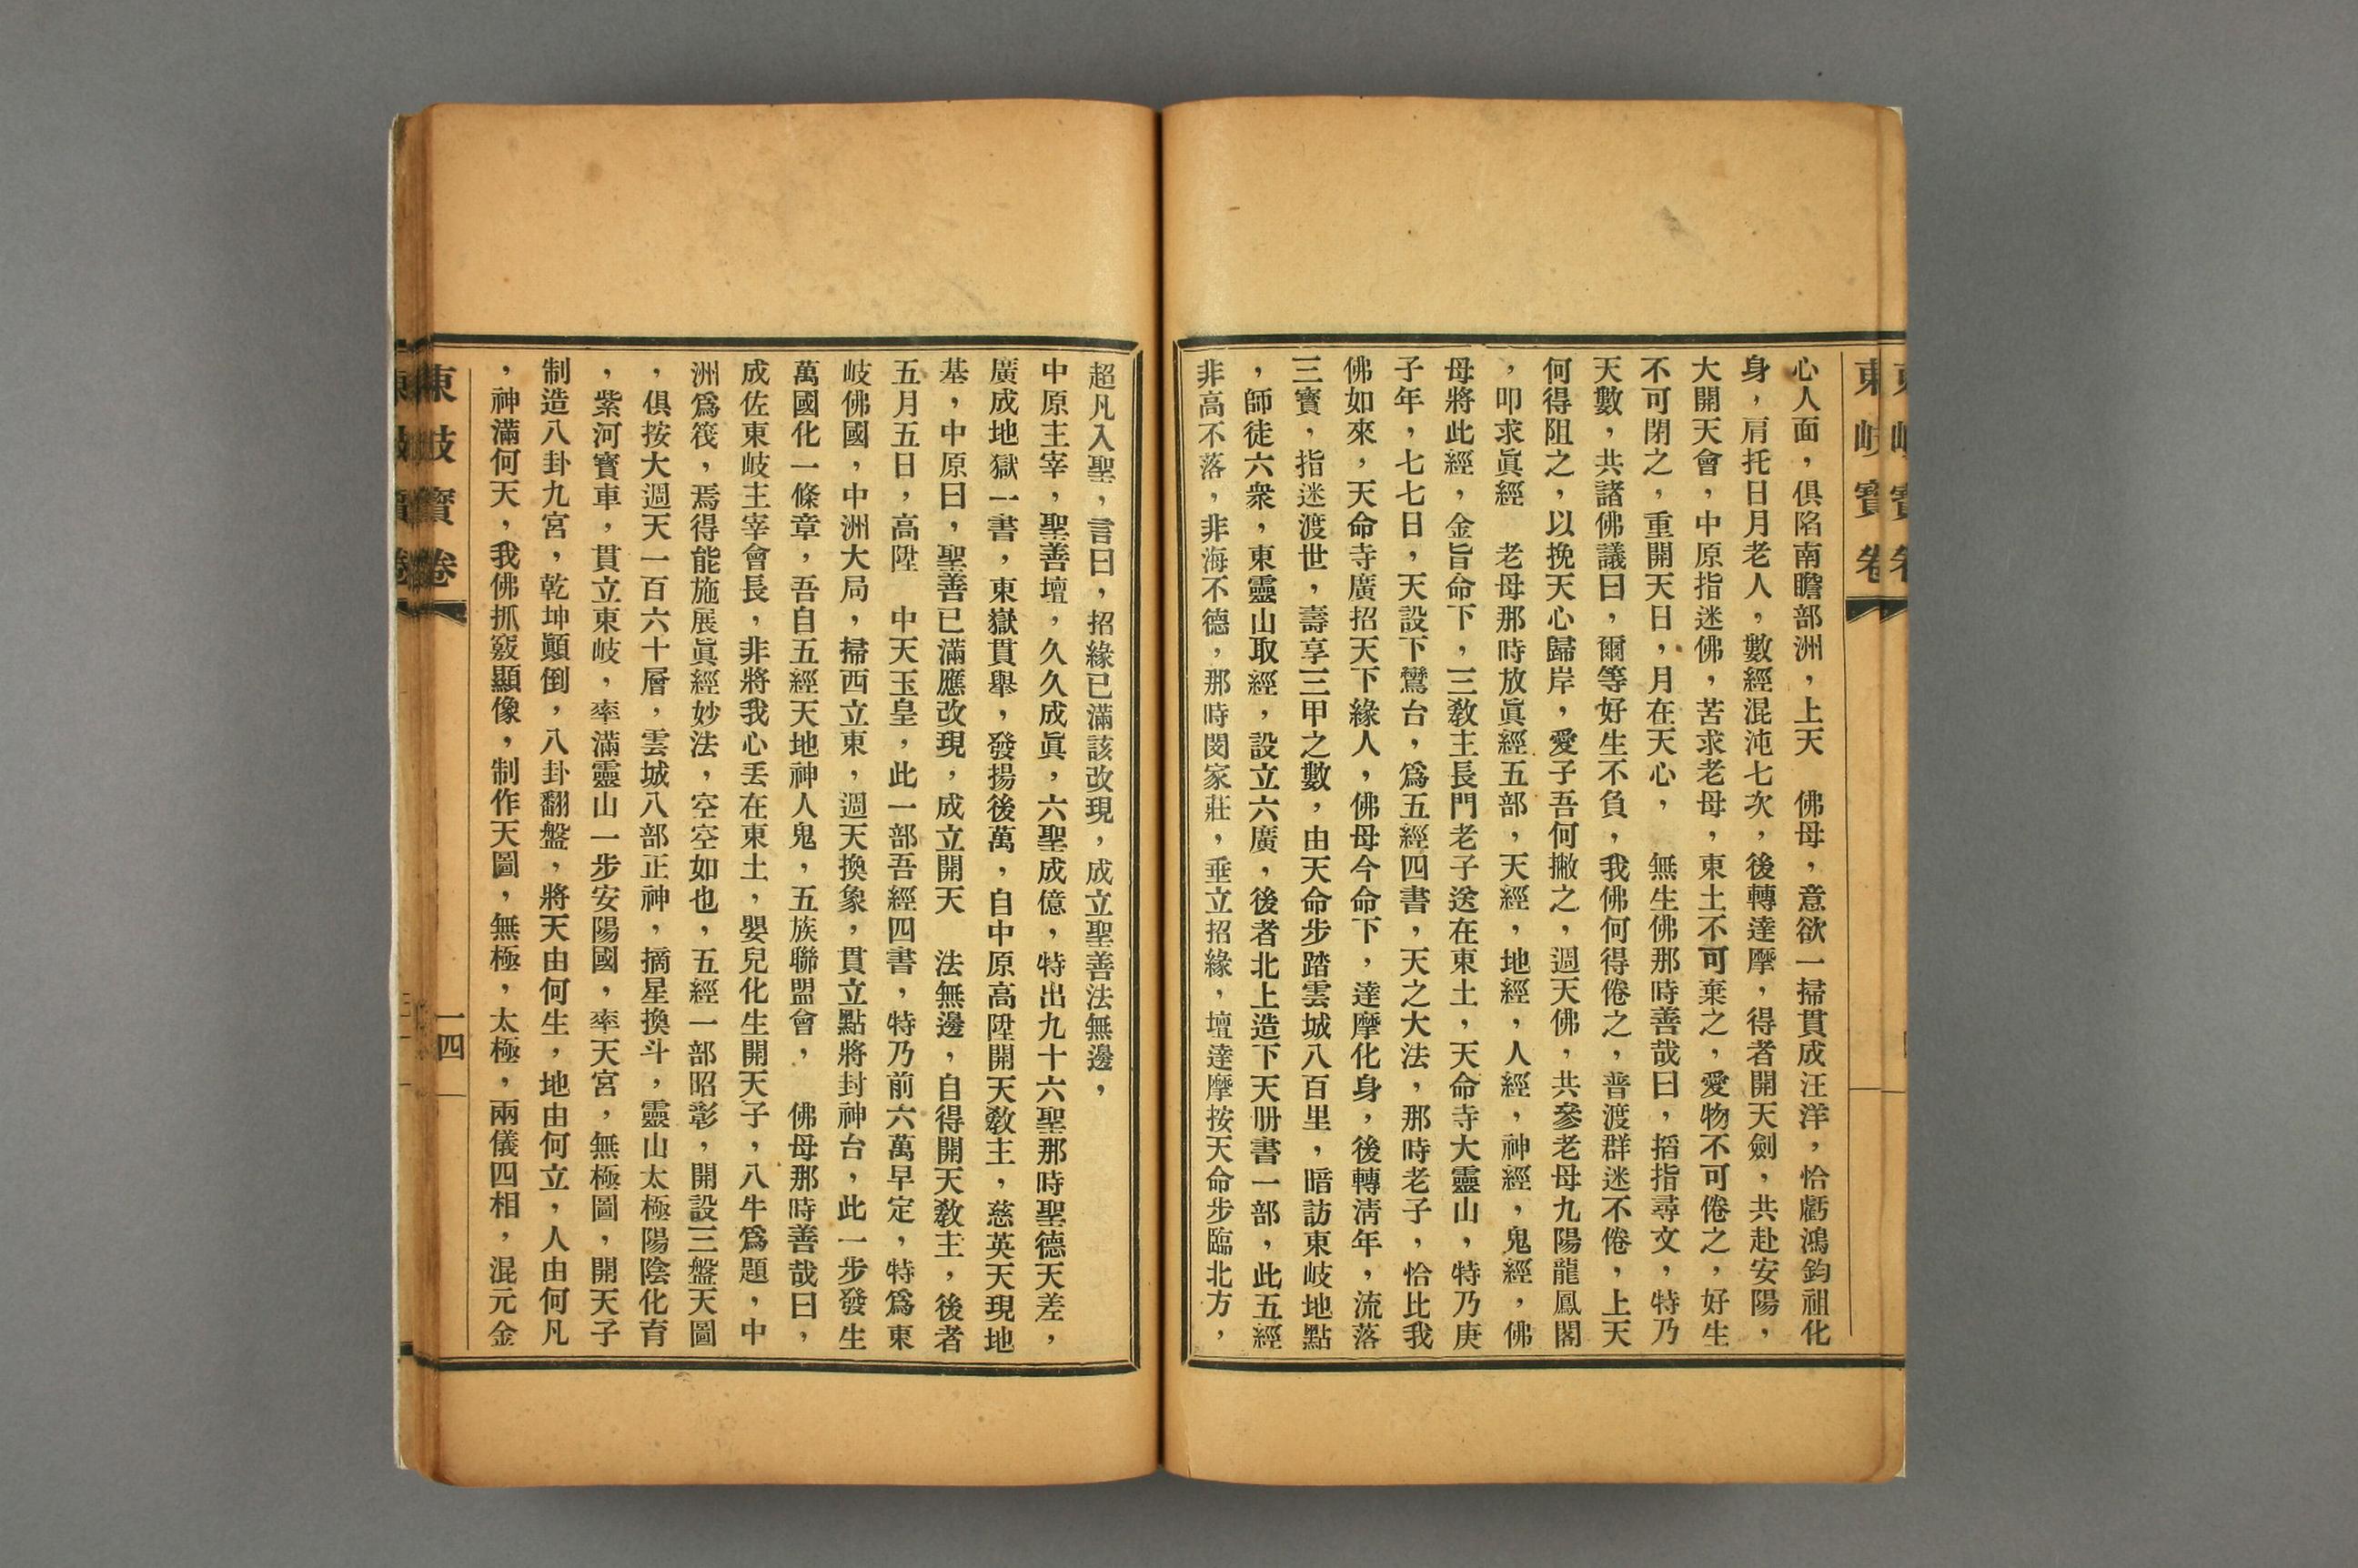 東岐寶卷
心人面，俱陷南瞻部洲，上天　佛母，意欲一掃貫成汪洋，恰虧鴻鈞祖化
身，肩托日月老人，數經混沌七次，後轉達摩，得者開天劍，共赴安陽，
大開天會，中原指迷佛，苦求老母，東土不可棄之，愛物不可倦之，好生
不可閉之，重開天日，月在天心，　無生佛那時善哉曰，搯指尋文，特乃
天數，共諸佛議曰，爾等好生不負，我佛何得倦之，普渡群迷不倦，上天
何得阻之，以挽天心歸岸，愛子吾何撇之，週天佛，共參老母九陽龍鳳閣
，叩求眞經　老母那時放眞經五部，天經，地經，人經，神經，鬼經，佛
母將此經，金旨命下，三敎主長門老子送在東土，天命寺大靈山，特乃庚
子年，七七日，天設下鸞台，爲五經四書，天之大法，那時老子，恰比我
佛如來，天命寺廣招天下緣人，佛母今命下，達摩化身，後轉淸年，流落
三寶，指迷渡世，壽享三甲之數，由天命步踏雲城八百里，暗訪東岐地點
，師徒六衆，東靈山取經，設立六廣，後者北上造下天册書一部，此五經
非高不落，非海不德，那時閔家莊，垂立招緣，壇達摩按天命步臨北方，
超凡入聖，言曰，招緣已滿該改現，成立聖善法無邊，
中原主宰，聖善壇，久久成眞，六聖成億，特出九十六聖那時聖德天差，
廣成地獄一書，東嶽貫舉，發揚後萬，自中原高陞開天敎主，慈英天現地
基，中原曰，聖善已滿應改現，成立開天　法無邊，自得開天敎主，後者
五月五日，高陞　中天玉皇，此一部吾經四書，特乃前六萬早定，特爲東
岐佛國，中洲大局，掃西立東，週天換象，貫立點將封神台，此一步發生
萬國化一條章，吾自五經天地神人鬼，五族聯盟會，　佛母那時善哉曰，
成佐東岐主宰會長，非將我心丟在東土，嬰兒化生開天子，八牛爲題，中
洲爲筏，焉得能施展眞經妙法，空空如也，五經一部昭彰，開設三盤天圖
，俱按大週天一百六十層，雲城八部正神，摘星換斗，靈山太極陽陰化育
，紫河寶車，貫立東岐，率滿靈山一步安陽國，率天宮，無極圖，開天子
制造八卦九宮，乾坤顚倒，八卦翻盤，將天由何生，地由何立，人由何凡
，神滿何天，我佛抓竅顯像，制作天圖，無極，太極，兩儀四相，混元金
東岐寶卷
一四